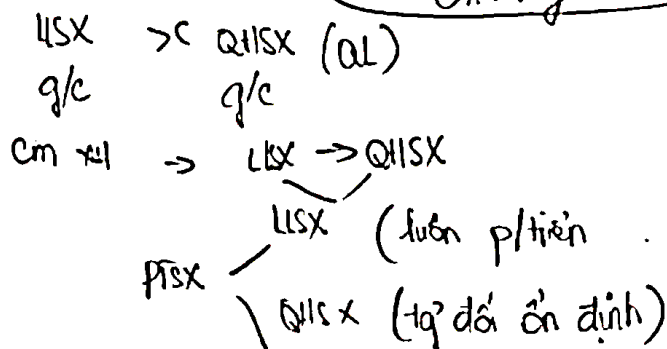 LLSX >< QHSX (QL)
g/c g/c
Cm xH → LLSX → QHSX
LLSX (luôn p/tiến
PTSX
QHSX (tg' đối ổn định)